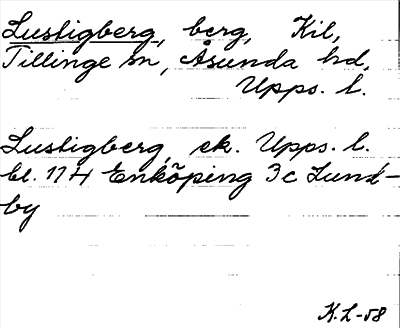 Lustigberg, berg, Kil,
Tillinge sn, Åsunda hd,
Upps. l.
Lustigberg, ek. Upps. l.
bl. 114 Enköping 3c Lund-
by
K.L-58